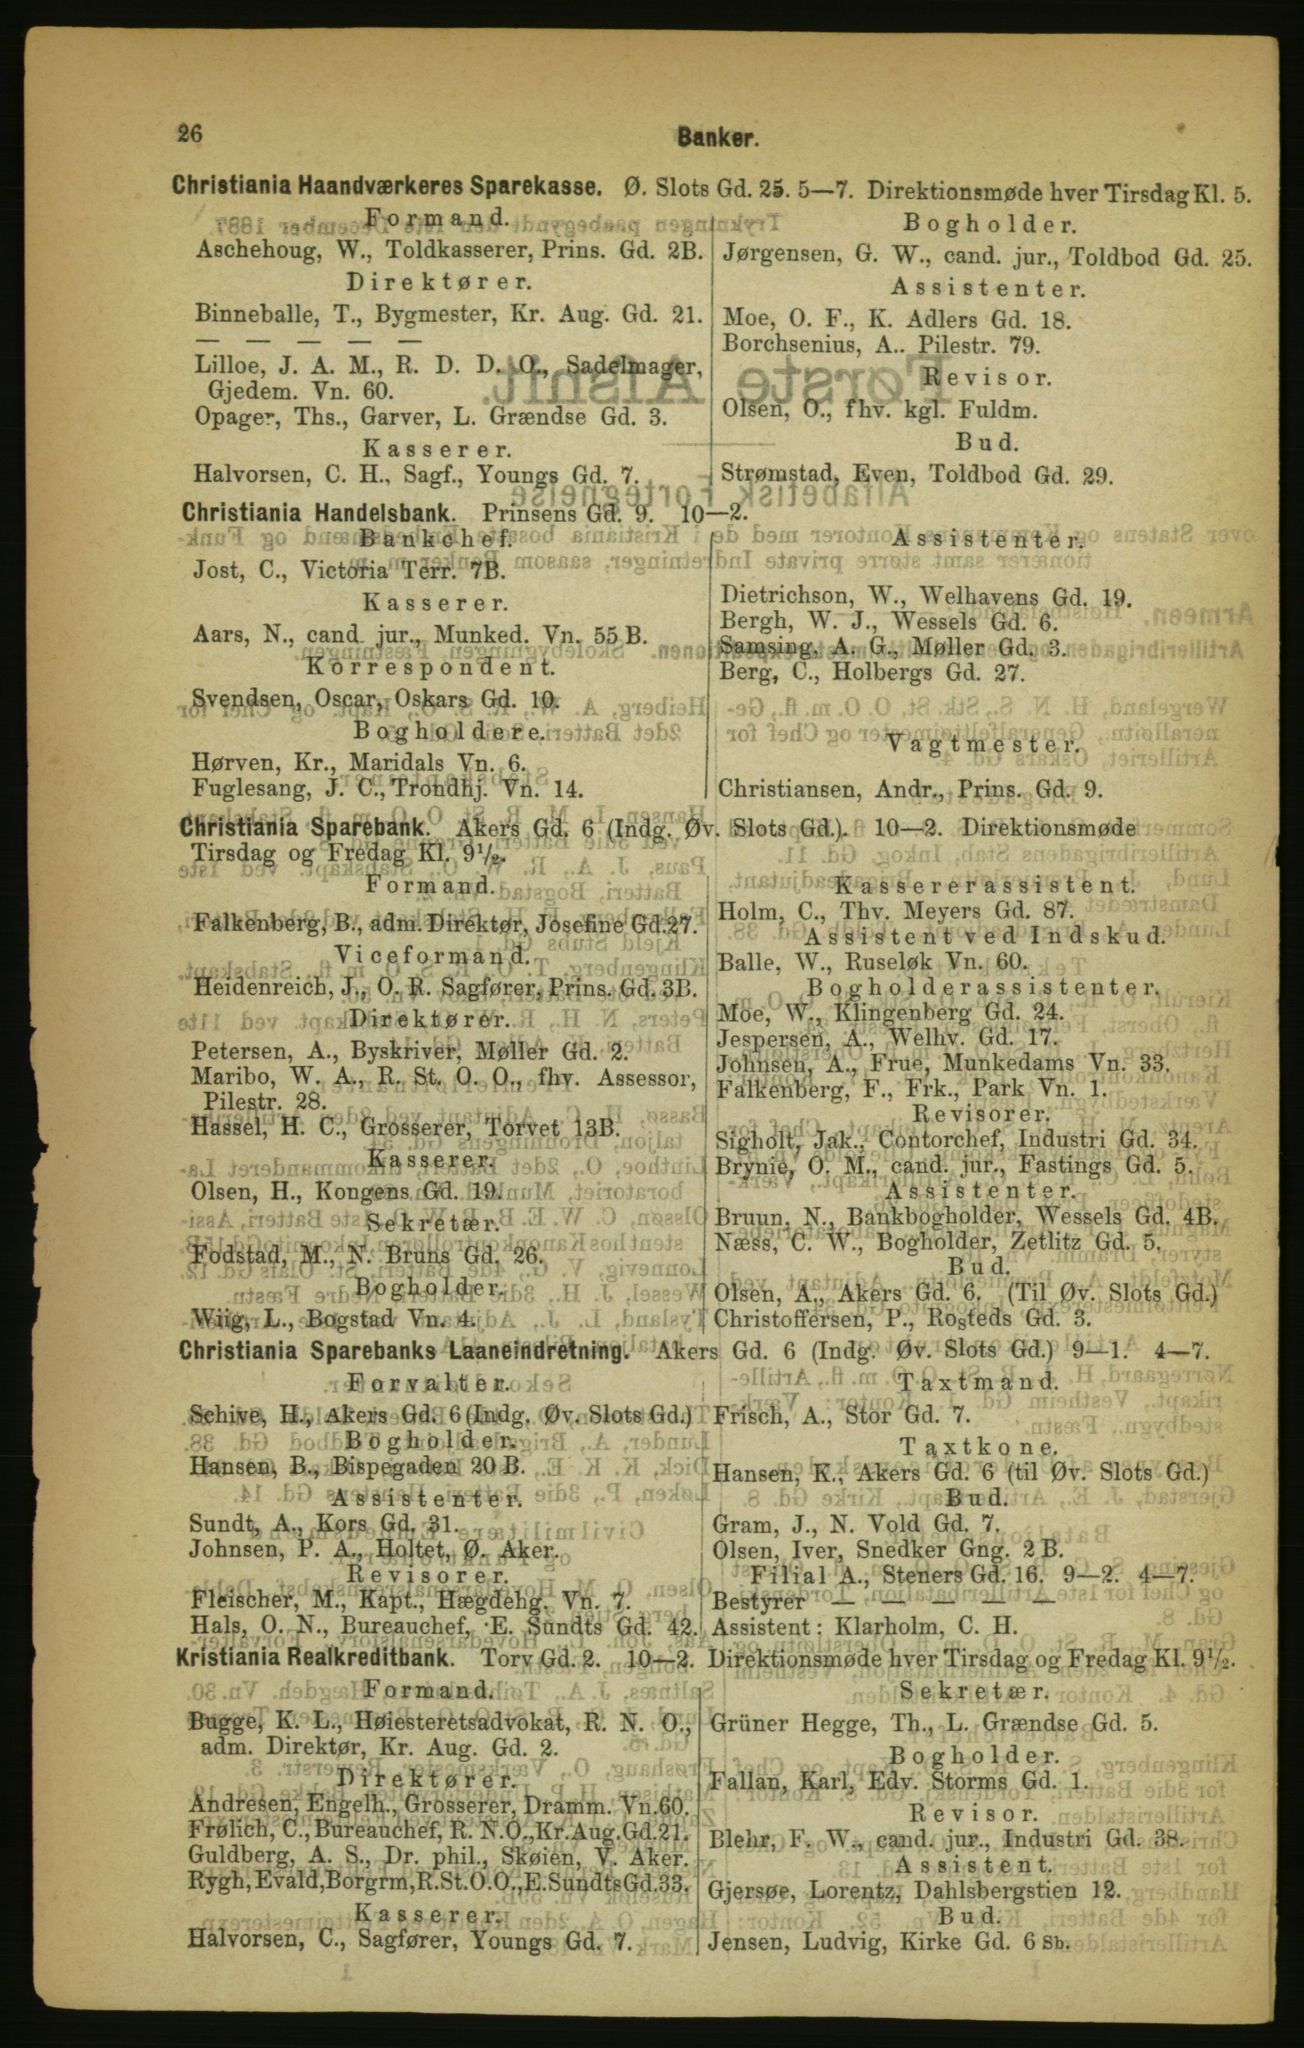 26
Banker.
Christiania Haandværkeres Sparekasse. Ø. Slots Gd. 25. 5—7. Direktionsmøde hver Tirsdag Kl. 5.
Formand.
Aschehoug, W., Toldkasserer, Prins. Gd. 2B.
Direktører.
Binneballe, T., Bygmester, Kr. Aug. Gd. 21.
— — — — —
Lilloe, J. A. M., R. D. D. O., Sadelmager,
Gjedem. Vn. 60.
Opager, Ths., Garver, L. Grændse Gd. 3.
Kasserer.
Halvorsen, C. H., Sagf., Youngs Gd. 7.
Bogholder.
Jørgensen, G. W., cand. jur., Toldbod Gd. 25.
Assistenter.
Moe, O. F., K. Adlers Gd. 18.
Borchsenius, A.. Pilestr. 79.
Revisor.
Olsen, O., fhv. kgl. Fuldm.
Bud.
Strømstad, Even, Toldbod Gd. 29.
Christiania Handelsbank. Prinsens Gd. 9. 10—2.
Bankchef.
Jost, C., Victoria Terr. 7B.
Kasserer.
Aars, N., cand. jur., Munked. Vn. 55 B.
Korrespondent.
Svendsen, Oscar, Oskars Gd. 10.
Bogholdere.
Hørven, Kr., Maridals Vn. 6.
Fuglesang, J. C., Trondhj. Vn. 14.
Assistenter.
Dietrichson, W., Welhavens Gd. 19.
Bergh, W. J., Wessels Gd. 6.
Samsing, A. G., Møller Gd. 3.
Berg, C., Holbergs Gd. 27.
Vagtmester.
Christiansen, Andr., Prins. Gd. 9.
Christiania Sparebank. Akers Gd. 6 (Indg. Øv. Slots Gd.). 10—2. Direktionsmøde
Tirsdag og Fredag Kl. 9½.
Formand.
Falkenberg, B., adm. Direktør, Josefine Gd. 27.
Viceformand.
Heidenreich, J., O. R. Sagfører, Prins. Gd. 3B.
Direktører.
Petersen, A., Byskriver, Møller Gd. 2.
Maribo, W. A., R. St. O. O., fhv. Assessor,
Pilestr. 28.
Hassel, H. C., Grosserer, Torvet 13B.
Kasserer.
Olsen, H., Kongens Gd. 19.
Sekretær.
Fodstad, M., N. Bruns Gd. 26.
Bogholder.
Wiig, L., Bogstad Vn. 4.
Kassererassistent.
Holm, C., Thv. Meyers Gd. 87.
Assistent ved Indskud.
Balle, W., Ruseløk Vn. 60.
Bogholderassistenter.
Moe, W., Klingenberg Gd. 24.
Jespersen, A., Welhv. Gd. 17.
Johnsen, A., Frue, Munkedams Vn. 33.
Falkenberg, F., Frk., Park Vn. 1.
Revisorer.
Sigholt, Jak., Contorchef, Industri Gd. 34.
Brynie, O. M., cand. jur., Fastings Gd. 5.
Assistenter.
Bruun, N., Bankbogholder, Wessels Gd. 4B.
Næss, C. W., Bogholder, Zetlitz Gd. 5.
Bud.
Olsen, A., Akers Gd. 6. (Til Øv. Slots Gd.)
Christoffersen, P., Rosteds Gd. 3.
Christiania Sparebanks Laaneindretning. Akers Gd. 6 (Indg. Øv. Slots Gd.) 9—1. 4—7.
Forvalter.
Schive, H., Akers Gd. 6 (Indg. Øv. Slots Gd.)
Bogholder.
Hansen, B., Bispegaden 20 B.
Assistenter.
Sundt, A., Kors Gd. 31.
Johnsen, P. A., Holtet, Ø. Aker.
Revisorer.
Fleischer, M., Kapt., Hægdehg. Vn. 7.
Hals, O. N., Bureauchef, E. Sundts Gd. 42.
Taxtmand.
Frisch, A., Stor Gd. 7.
Taxtkone.
Hansen, K., Akers Gd. 6 (til Øv. Slots Gd.)
Bud.
Gram, J., N. Vold Gd. 7.
Olsen, Iver, Snedker Gng. 2 B.
Filial A., Steners Gd. 16. 9—2. 4—7.
Bestyrer — — — — —
Assistent: Klarholm, C. H.
Kristiania Realkreditbank. Torv Gd. 2. 10—2. Direktionsmøde hver Tirsdag og Fredag Kl. 9½.
Formand.
Bugge, K. L., Høiesteretsadvokat, R. N. O.,
adm. Direktør, Kr. Aug. Gd. 2.
Direktører.
Andresen, Engelh., Grosserer, Dramm. Vn. 60.
Frølich, C., Bureauchef, R. N. O., Kr. Aug. Gd. 21.
Guldberg, A. S., Dr. phil., Skøien, V. Aker.
Rygh, Evald, Borgrm, R. St. O. O., E. Sundts Gd. 33.
Kasserer.
Halvorsen, C., Sagfører, Youngs Gd. 7.
Sekretær.
Grüner Hegge, Th., L. Grændse Gd. 5.
Bogholder.
Fallan, Karl, Edv. Storms Gd. 1.
Revisor.
Blehr, F. W., cand. jur., Industri Gd. 38.
Assistent.
Gjersøe, Lorentz, Dahlsbergstien 12.
Bud.
Jensen, Ludvig, Kirke Gd. 6 Sb.